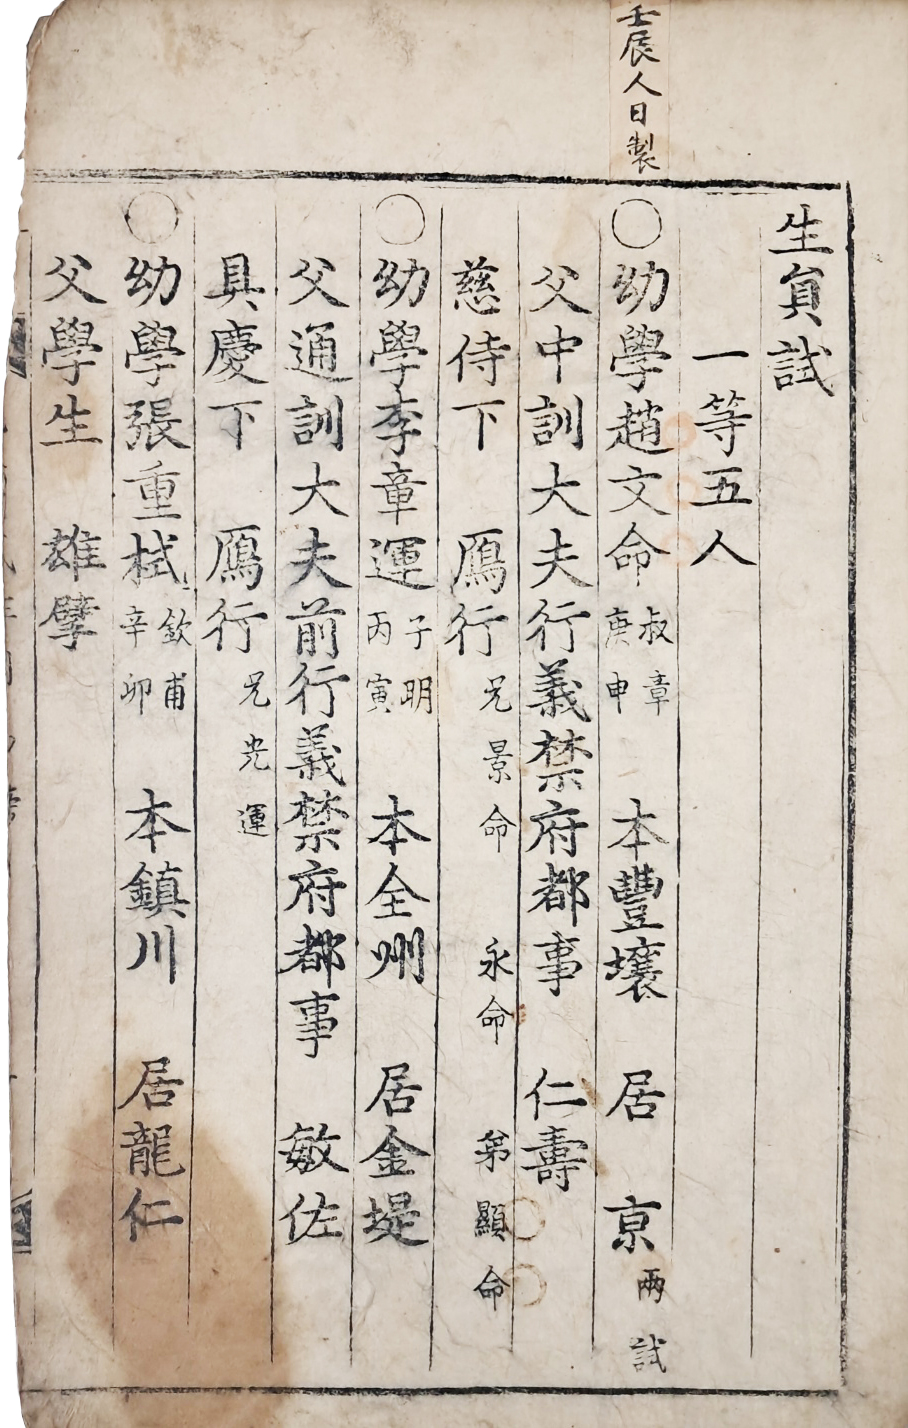 壬辰人日製
生貟試
一等五人
○幼學趙文命 叔章 庚申 本豐壤 居 京 兩試
父中訓大夫行義禁府都事 仁壽
慈侍下 鴈行 兄景命 永命 弟顯命
○幼學李章運 子明 丙寅 本全州 居金堤
父通訓大夫前行義禁府都事 敏佐
具慶下 鴈行 兄光運
○幼學張重栻 欽甫 辛卯 本鎮川 居龍仁
父學生 雄擘